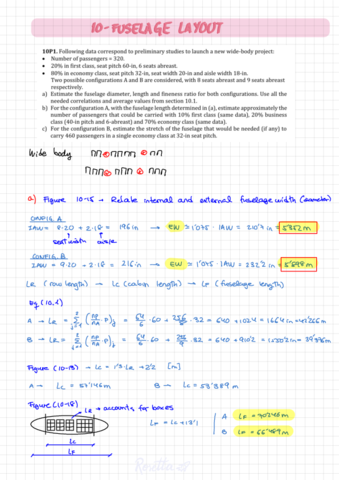 10-FUSELAGE LAYOUT
10P1. Following data correspond to preliminary studies to launch a new wide-body project:
• Number of passengers = 320.
• 20% in first class, seat pitch 60-in, 6 seats abreast.
• 80% in economy class, seat pitch 32-in, seat width 20-in and aisle width 18-in.
Two possible configurations A and B are considered, with 8 seats abreast and 9 seats abreast
respectively.
a) Estimate the fuselage diameter, length and fineness ratio for both configurations. Use all the
needed correlations and average values from section 10.1.
b) For the configuration A, with the fuselage length determined in (a), estimate approximately the
number of passengers that could be carried with 10% first class (same data), 20% business
class (40-in pitch and 6-abreast) and 70% economy class (same data).
c) For the configuration B, estimate the stretch of the fuselage that would be needed (if any) to
carry 460 passengers in a single economy class at 32-in seat pitch.
Wide body
a) Figure 10-15 → Relate internal and external fuselage width (diameter)
CONFIG. A
IAW = 8·20 + 2·18 = 196 in → EW = 1'045 · IAW = 210'4 in =
seat width aisle
CONFIG. B
IAW = 9·20 + 2·18 = 216 in → EW = 1'045 · IAW = 232'2 in = 5'898 m
LR (row length) → LC (cabin length) → LF (fuselage length)
Eq. (10.1)
A → LR = = 64/6 · 60 + 256/8 · 32 = 640 + 1024 = 1664 in =
B → LR = = 64/6 · 60 + · 32 = 640 + 910'2 =
Figure (10-13) → LC = 1'3·LR + 2'2 [m]
A → LC = 57'146 m B → LC = 53'389 m
Figure (10-18)
LR → accounts for boxes
LC
LF
LF = LC + 13'1
A LF = 70'246 m
B LF = 66'489 m